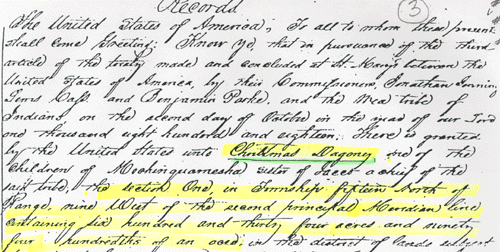 Records
3
The United States of America; To all to whom these present
shall come Greeting: Know Ye, that in pursuance of the third
article of the treaty made and concluded at St. Mary's between the
United States of America, by their Commissioners, Jonathan Jennin,
Lewis Cass and Benjamin Parke, and the Wea tribe of
Indians, on the second day of October in the year of our Lord
one thousand eight hundred and eighteen. There is granted
by the United States unto Christmas Dagony one of the
Children of Mechinquamesha sister of Jacco a chief of the
said tribe, the section One, in Township fifteen North of
Range, nine West of the second principal Meridian line
containing six hundred and thirty four acres and ninety
four hundredths of an acre, in the district of lands subject